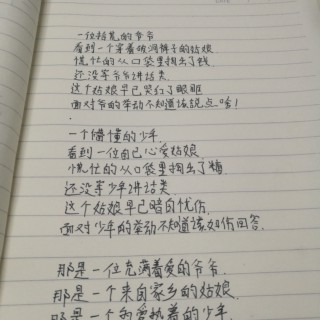 一位拾荒的爷爷
看到一个穿着破洞裤子的姑娘
慌忙的从口袋里掏出了钱
还没等爷爷讲话类
这个姑娘早已哭红了眼眶
面对爷的举动不知道该说点啥！
一个懵懂的少年
看到一位自己心爱姑娘
慌忙的从口袋里掏出了糖
还没等少年讲话类
这个姑娘早已暗自忧伤
面对少年的举动不知道该如何回答
那是一位充满着爱的爷爷
那是一个来自家乡的姑娘
那是一个 的少年